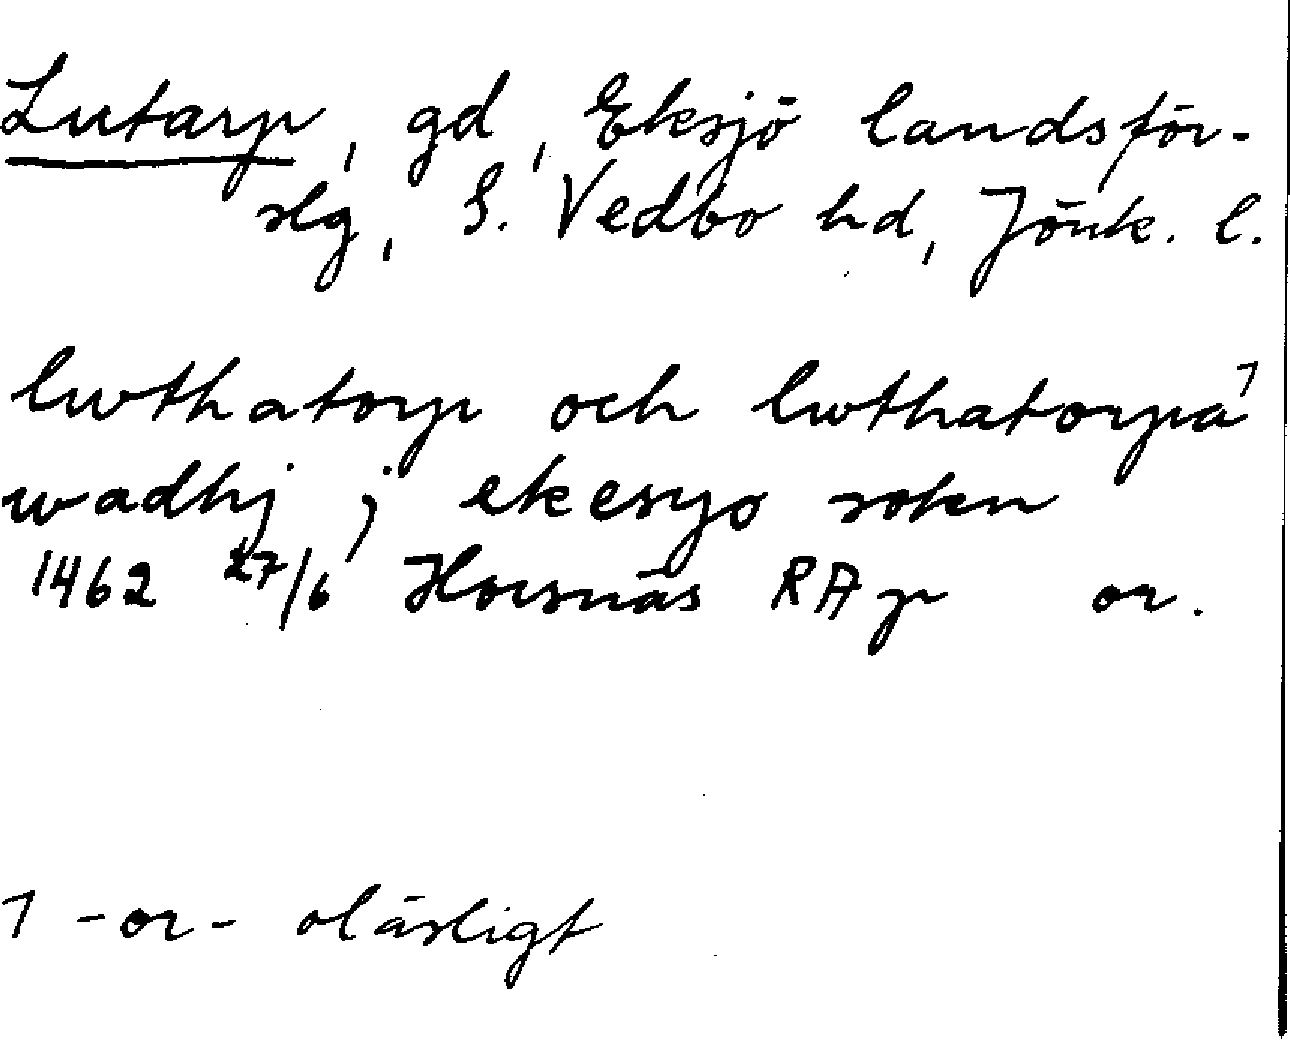 Lutarp, gd, Eksjö landsför-
slg, S. Vedbo hd, Jönk. l.
lwthatorp och lwthatorpa¹
wadhj j ekesyo sokn
1462 27/6 Horsnäs RAp or.
1 -or- oläsligt